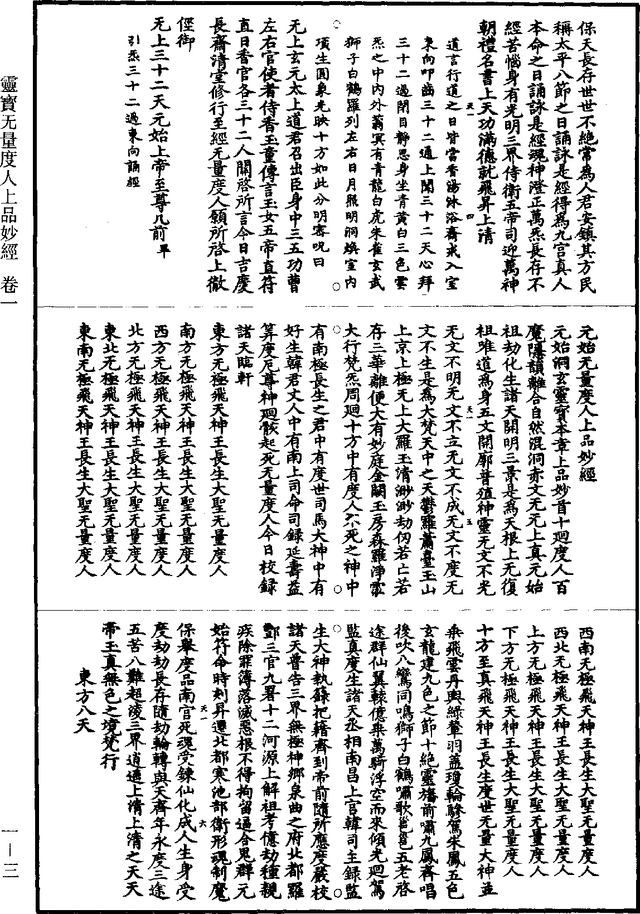 保天長存世世不絕常為人君安鎮其方民
稱太平八節之日誦詠是經得為九宮真人
本命之日誦詠是經魂神澄正萬炁長存不
經苦惱身有光明三界侍衛五帝司迎萬神
朝禮名書上天功滿德就飛昇上清
道言行道之日皆當香湯沐浴齋戒入室
東向叩齒三十二通上聞三十二天心拜
三十二過閉目靜思身坐青黃白三色雲
炁之中內外蓊冥有青龍白虎朱雀玄武
獅子白鶴羅列左右日月照明洞煥室內
項生圓象光映十方如此分明密呪曰
无上玄元太上道君召出臣身中三五功曹
左右官使者侍香玉童傳言玉女五帝直符
直日香官各三十二人關啓所言今日吉慶
長齋清堂修行至經无量度人願所啓上徹
徑御
无上三十二天元始上帝至尊几前畢
引炁三十二過東向誦經
元始无量度人上品妙經
元始洞玄靈寶本章上品妙首十廻度人百
魔隱韻離合自然混洞赤文无无上真元始
祖劫化生諸天開明三景是為天根上无復
祖唯道為身五文開廓普殖神靈无文不光
无文不明无文不立无文不成无文不度无
文不生是為大梵天中之天鬱羅蕭臺玉山
上京上極无上大羅玉清渺渺劫仞若亡若
存三華離便大有妙庭金闕玉房森羅淨泓
大行梵炁周廻十方中有度人不死之神中
有南極長生之君中有度世司馬大神中有
好生韓君丈人中有南上司命司錄延壽益
算度厄尊神廻骸起死无量度人今日校錄
諸天臨軒
東方无極飛天神王長生大聖无量度人
南方无極飛天神王長生大聖无量度人
西方无極飛天神王長生大聖无量度人
北方无極飛天神王長生大聖无量度人
東北无極飛天神王長生大聖无量度人
東南无極飛天神王長生大聖无量度人
西南无極飛天神王長生大聖无量度人
西北无極飛天神王長生大聖无量度人
上方无極飛天神王長生大聖无量度人
下方无極飛天神王長生大聖无量度人
十方至真飛天神王長生度世无量大神並
乘飛雲丹輿綠輦羽蓋瓊輪驂駕朱鳳五色
玄龍建九色之節十絕靈旛前嘯九鳳齊唱
後吹八鸞同鳴獅子白鶴嘯歌邕邕五老啓
途群仙翼轅億乘萬騎浮空而來傾光迴駕
監真度生諸天丞相南昌上宮韓司主錄監
生大神執籙把籍齊到帝前隨所應度嚴校
諸天普告三界無極神鄉泉曲之府北都羅
酆三官九署十二河源上解祖考億劫種親
疾除罪簿落滅惡根不得拘留逼合鬼群元
始符命時刻昇遷北都寒池部衛形魂制魔
保舉度品南宮死魂受鍊仙化成人生身受
度劫劫長存隨劫輪轉與天齊年永度三途
五苦八難超淩三界逍遙上清上清之天天
帝玉真無色之境梵行
東方八天
靈寶无量度人上品妙經 卷一
一—三